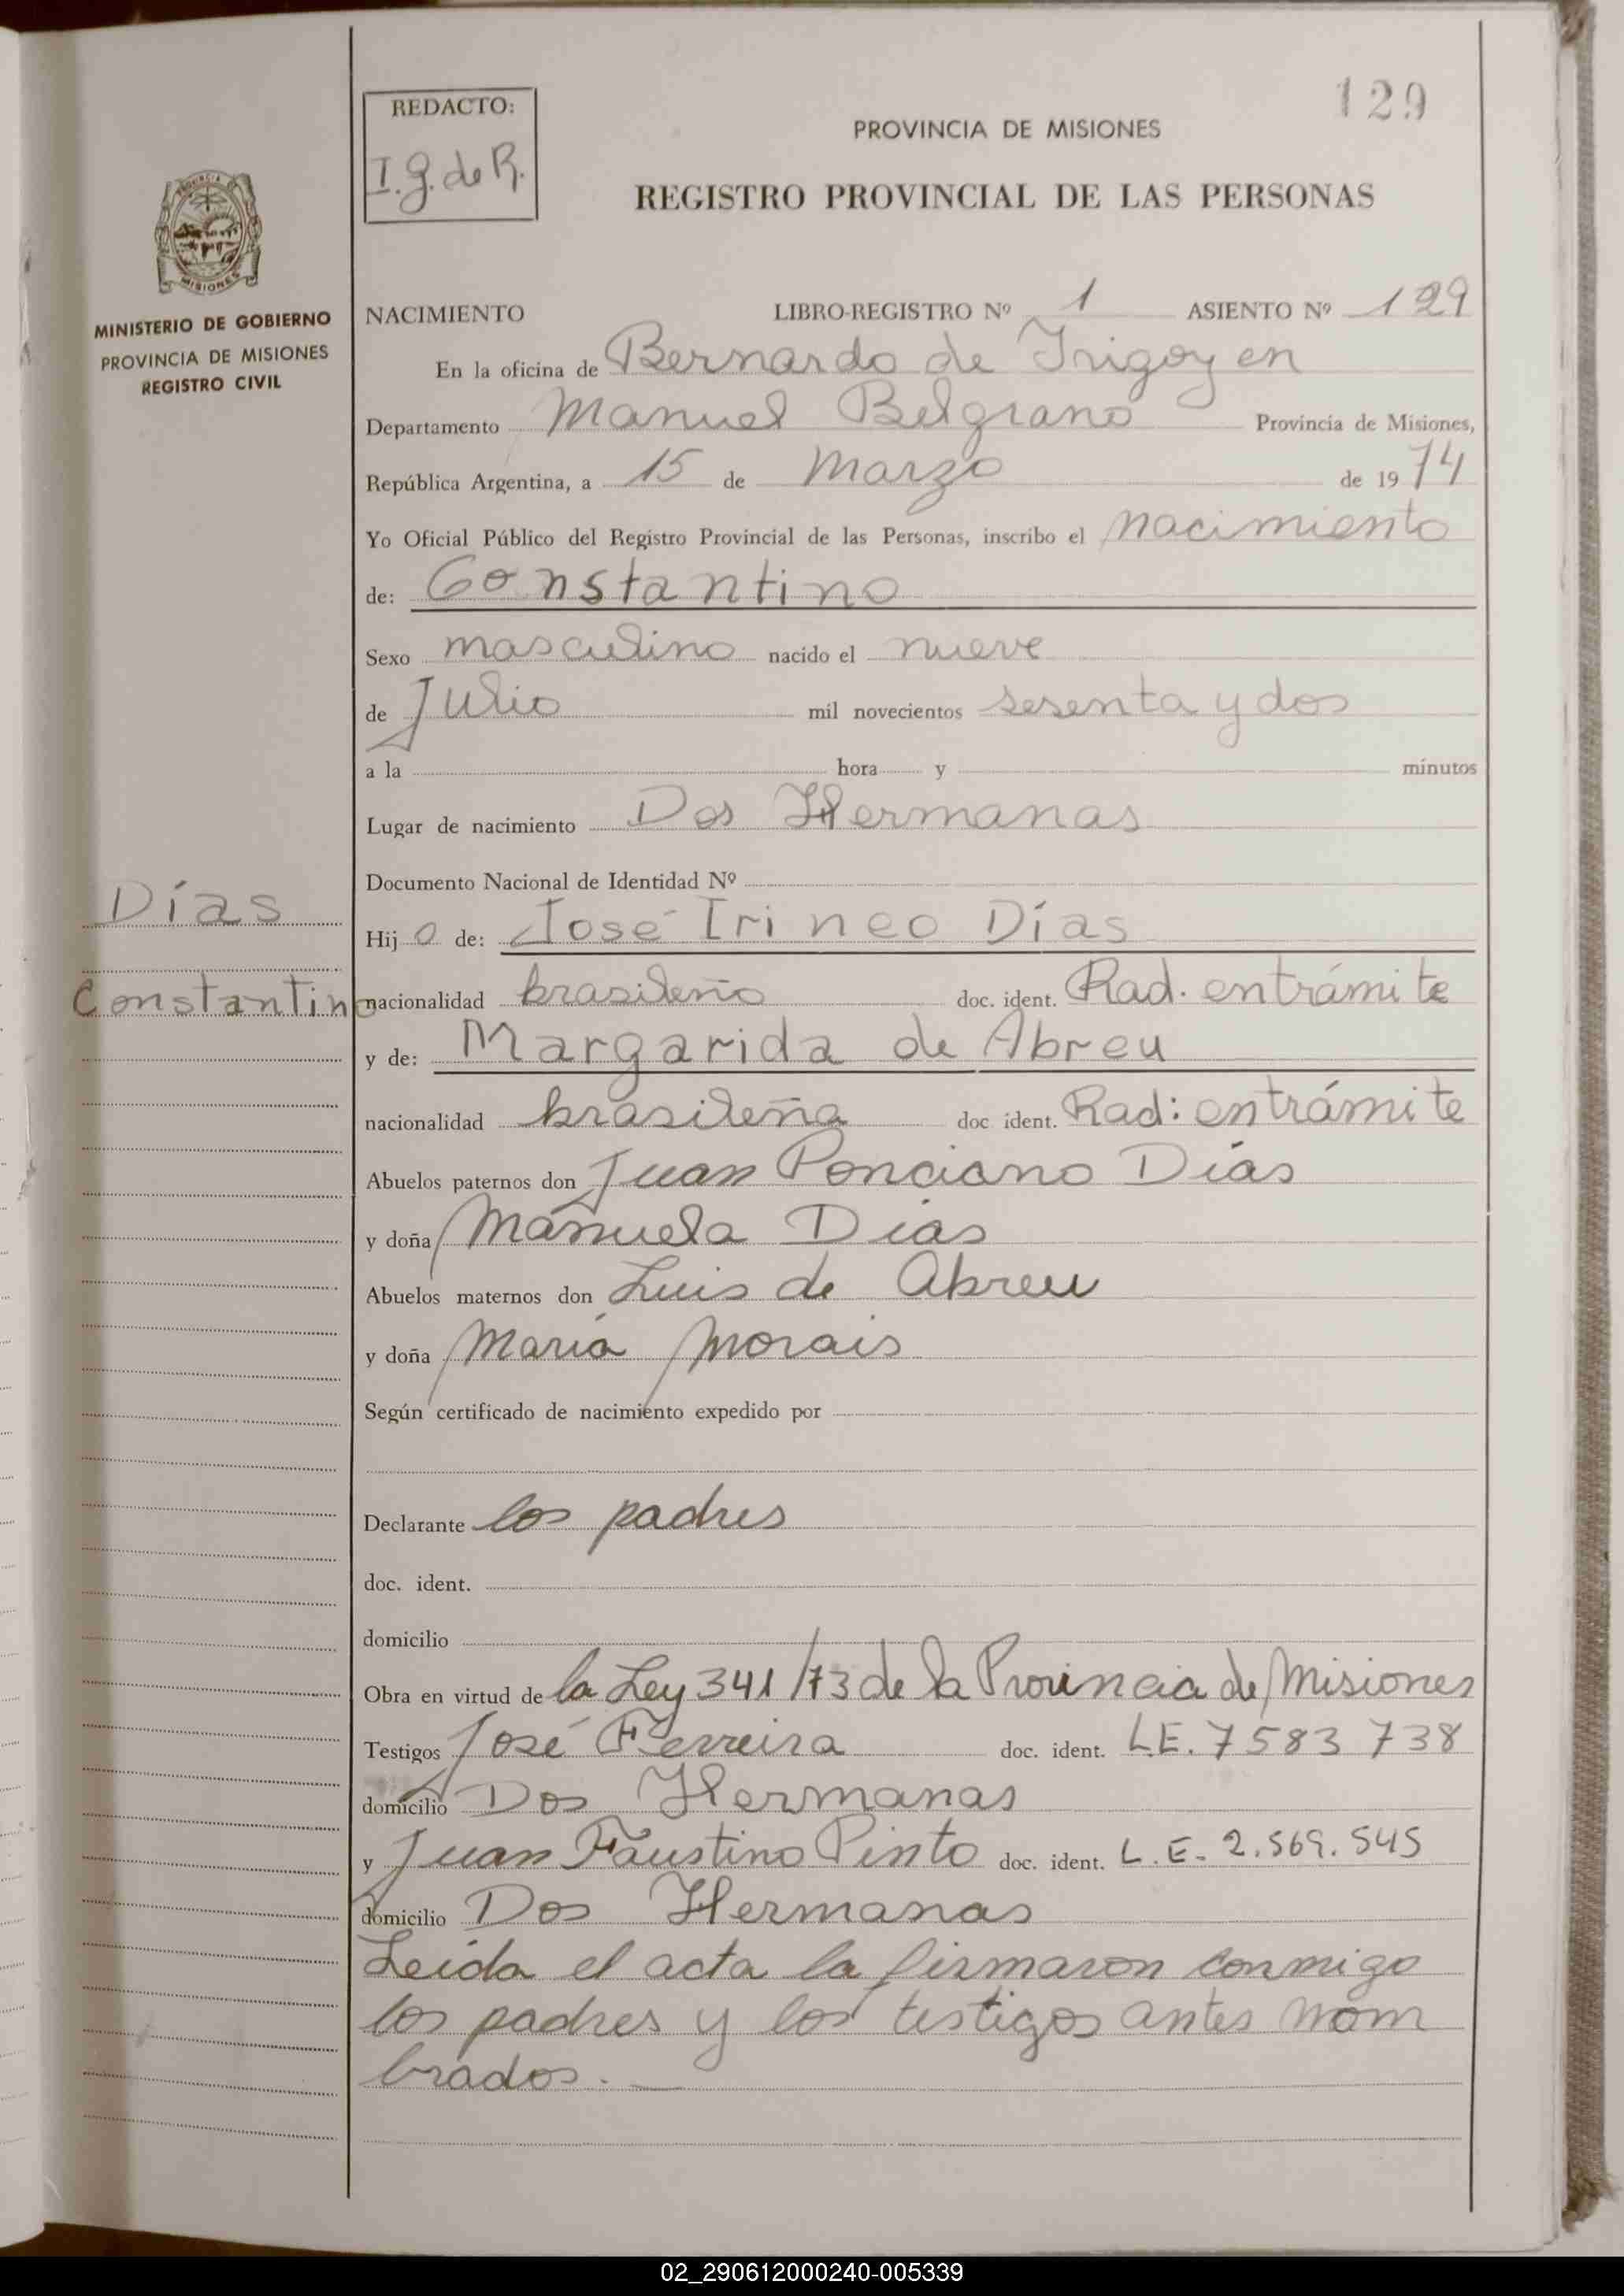 129
REDACTO:
I. g. de R.
PROVINCIA DE MISIONES
REGISTRO PROVINCIAL DE LAS PERSONAS
MINISTERIO DE GOBIERNO
PROVINCIA DE MISIONES
REGISTRO CIVIL
NACIMIENTO LIBRO-REGISTRO Nº 1 ASIENTO Nº 129
En la oficina de Bernardo de Irigoyen
Departamento Manuel Belgrano Provincia de Misiones,
República Argentina, a 15 de Marzo de 1974
Yo Oficial Público del Registro Provincial de las Personas, inscribo el nacimiento
de: Constantino
Sexo masculino nacido el nueve
de Julio mil novecientos sesenta y dos
a la hora y minutos
Lugar de nacimiento Dos Hermanas
Documento Nacional de Identidad Nº
Días
Hij o de: José Irineo Días
Constantino
nacionalidad brasileño doc. ident. Rad. en trámite
y de: Margarida de Abreu
nacionalidad brasileña doc ident. Rad: en trámite
Abuelos paternos don Juan Ponciano Días
y doña Manuela Dias
Abuelos maternos don Luis de Abreu
y doña María Morais
Según certificado de nacimiento expedido por
Declarante los padres
doc. ident.
domicilio
Obra en virtud de la Ley 341/73 de la Provincia de Misiones
Testigos José Ferreira doc. ident. LE. 7583738
domicilio Dos Hermanas
y Juan Faustino Pinto doc. ident. L. E. 2.569.545
domicilio Dos Hermanas
Leída el acta la firmaron conmigo
los padres y los testigos antes nom
brados. —
02_290612000240-005339